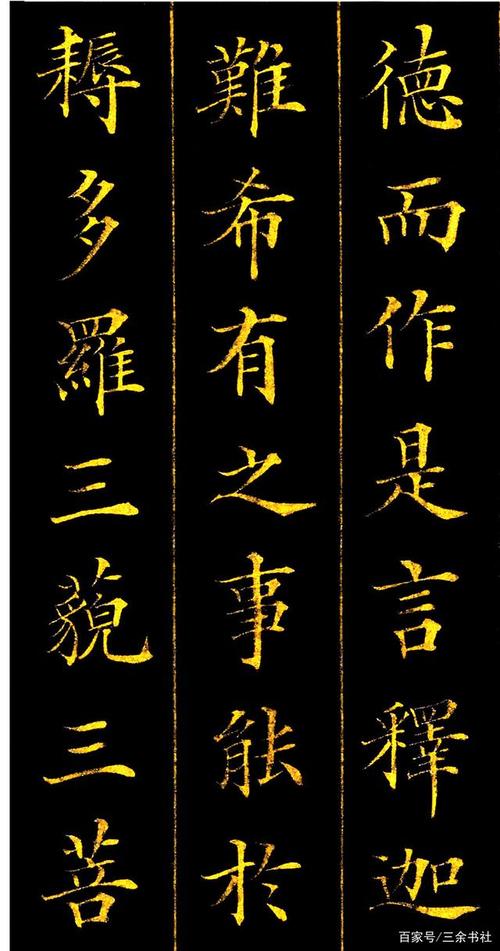 德而作是言釋迦
難希有之事能於
耨多羅三藐三菩
百家号/三余书社